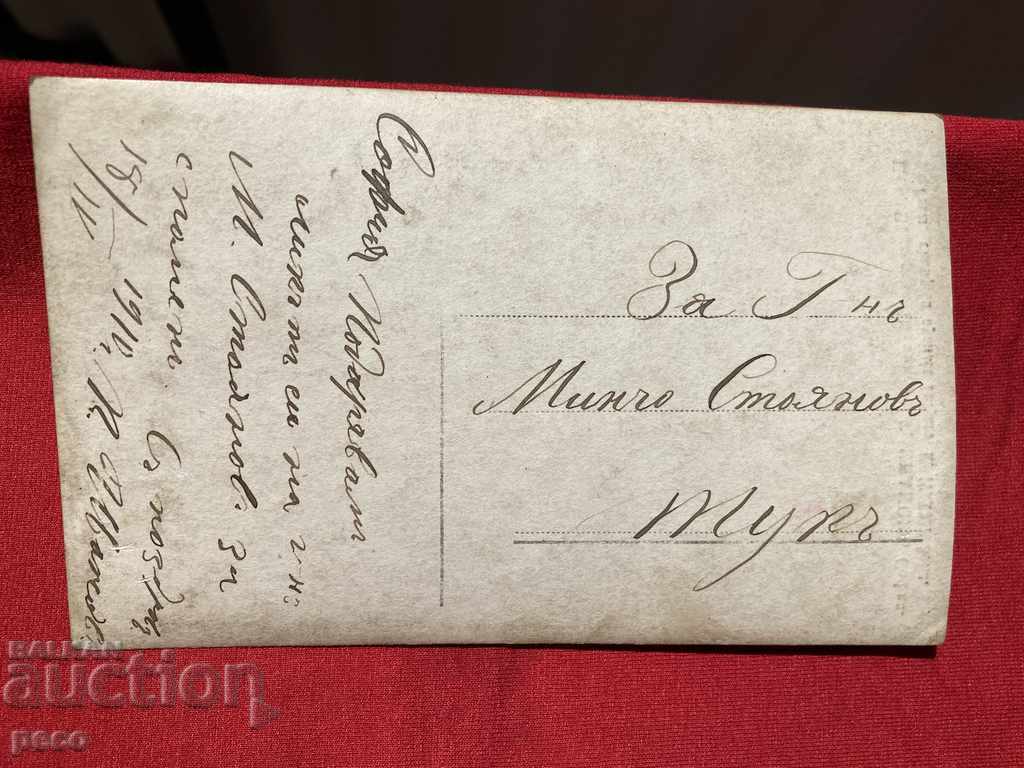 София Подарявам
ликът си на г-нъ
М. Стоянов. за
спомен Съ поздрав
18/IV 1912. Иванов
За Г-нъ
Минчо Стояновъ
Тукъ
BALKAN
auction
peco